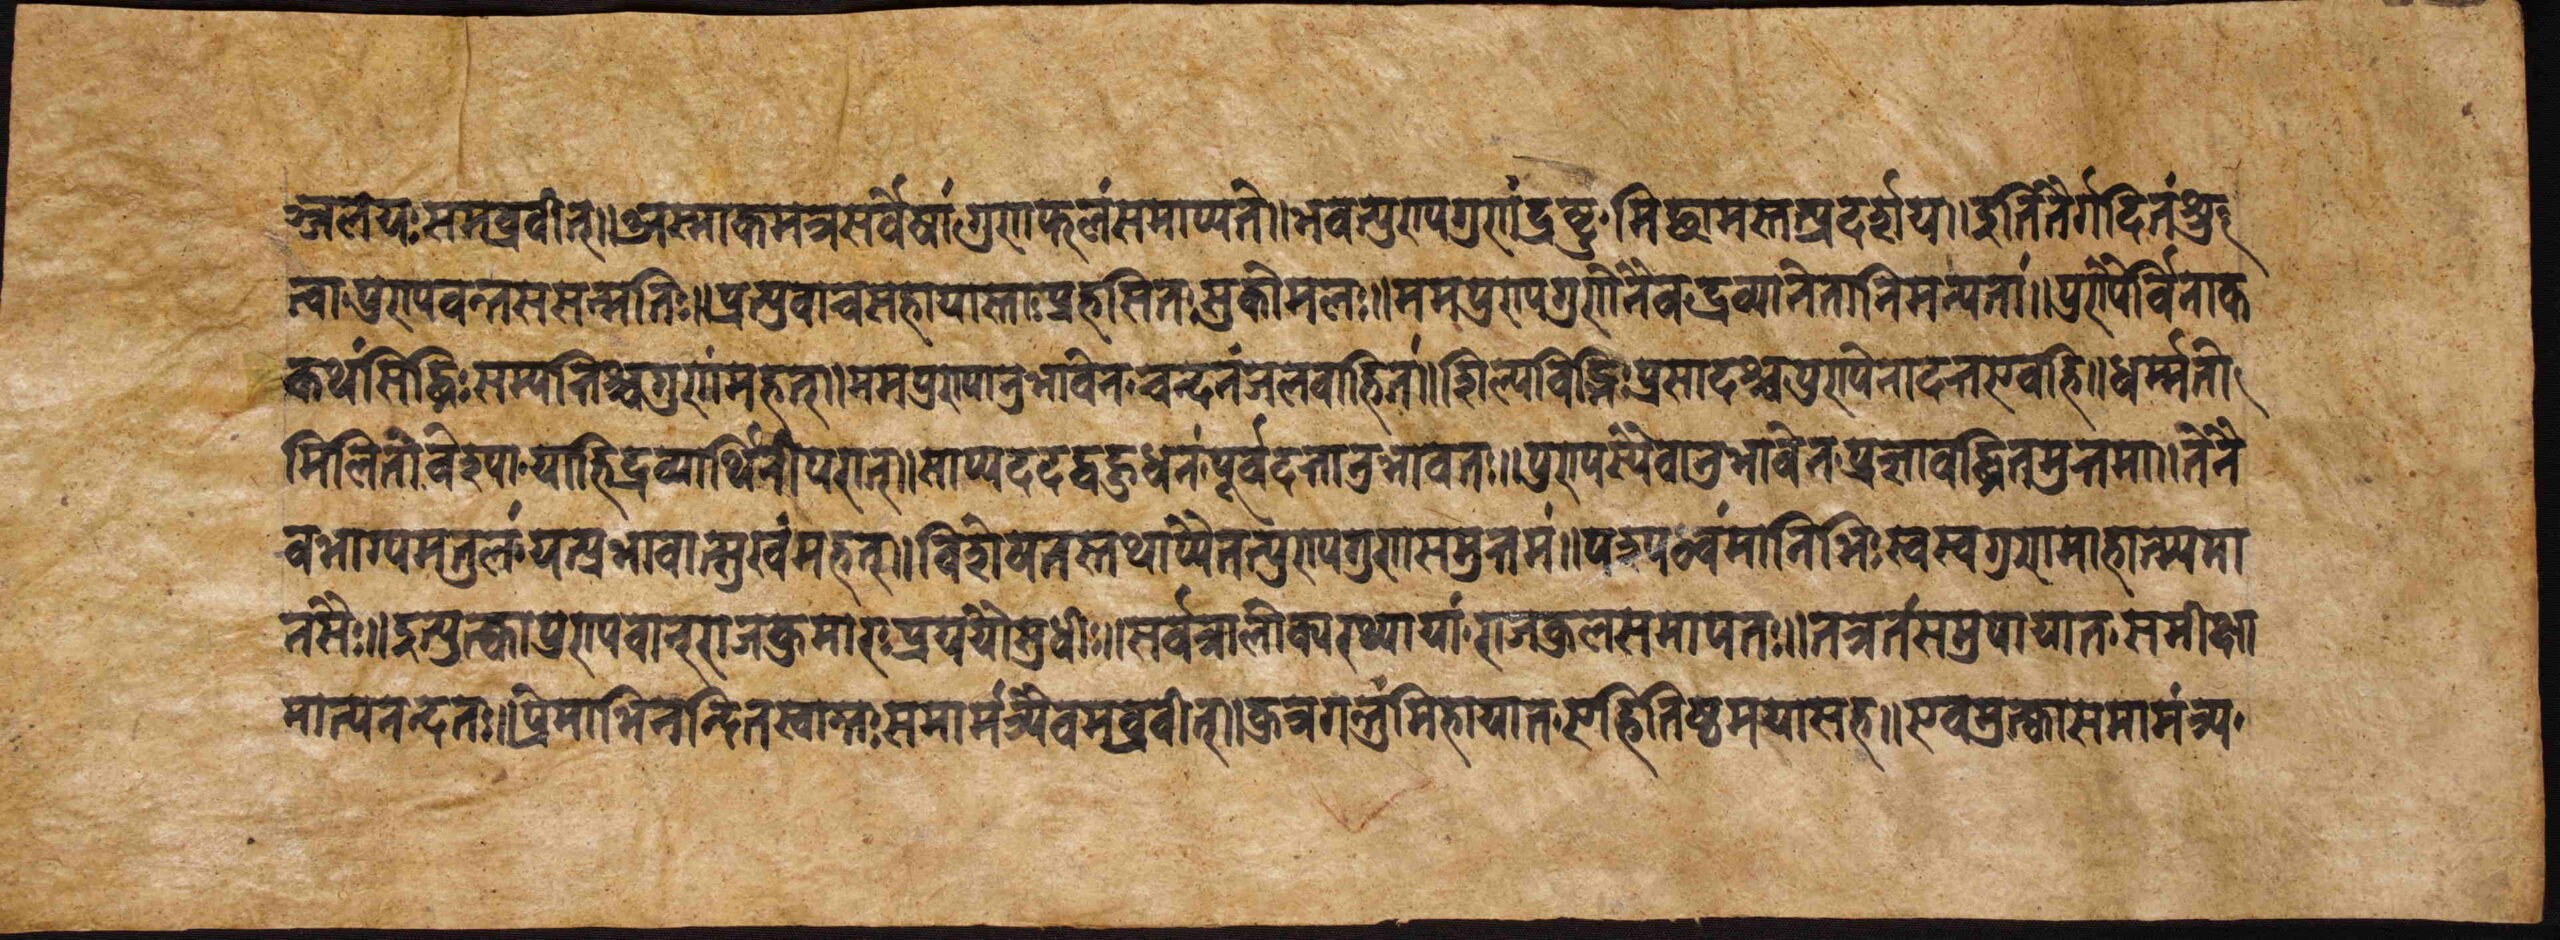 ञ्जलयः समब्रवीत्॥ अस्माकमत्र सर्वेषां गुणफलं समाप्यते॥ भवत्पुण्यगुणं द्रष्टुमिच्छामस्तत्प्रदर्शय॥ इति तैर्गदितं श्रु
त्वा पुण्यवन्तः स सन्मतिः॥ प्रत्युवाच सहायास्ताः प्रहसित मुकोमलः॥ मम पुण्यगुणेनैव द्रव्यानितानि मन्यतां॥ पुण्यैर्विना क
कथं सिद्धिः सम्पतिश्च गुणं महत्॥ मम पुण्यानुभावेन चन्दनं जलवाहिनं॥ शिल्पविद्भिः प्रसादश्च पुण्येनादत्त एव हि॥ धर्म्मनी
मिलिनी वेश्या या हि द्रव्यार्थिनी परान्॥ साप्यददद्बहुधनं पूर्वदत्तानुभावतः॥ पुण्यस्यैवानुभावेन प्रज्ञावद्धितमुत्तमा॥ तेनै
व भाग्यमतुलं यत्प्रभावात्सुखं महत्॥ विशेषतस्तथाप्येतत्पुण्यगुणसमुत्तमं॥ पश्यध्वं मानिभिः स्वस्वगुणमाहात्म्यमा
नसैः॥ इत्युत्क्वा पुण्यवान् राजकुमारः प्रययौ सुधीः॥ सर्वत्रालोक्य रथ्यायां राजकुलसमापतः॥ तत्रेतं समुपायात समीक्षा
मात्यनन्दतः॥ प्रेमाभिनन्दित स्वात्मः समामंत्र्यैवमब्रवीत्॥ कुत्र गन्तुमिहायात एहि तिष्ठ मया सह॥ एवमुत्क्वा समामंत्र्य